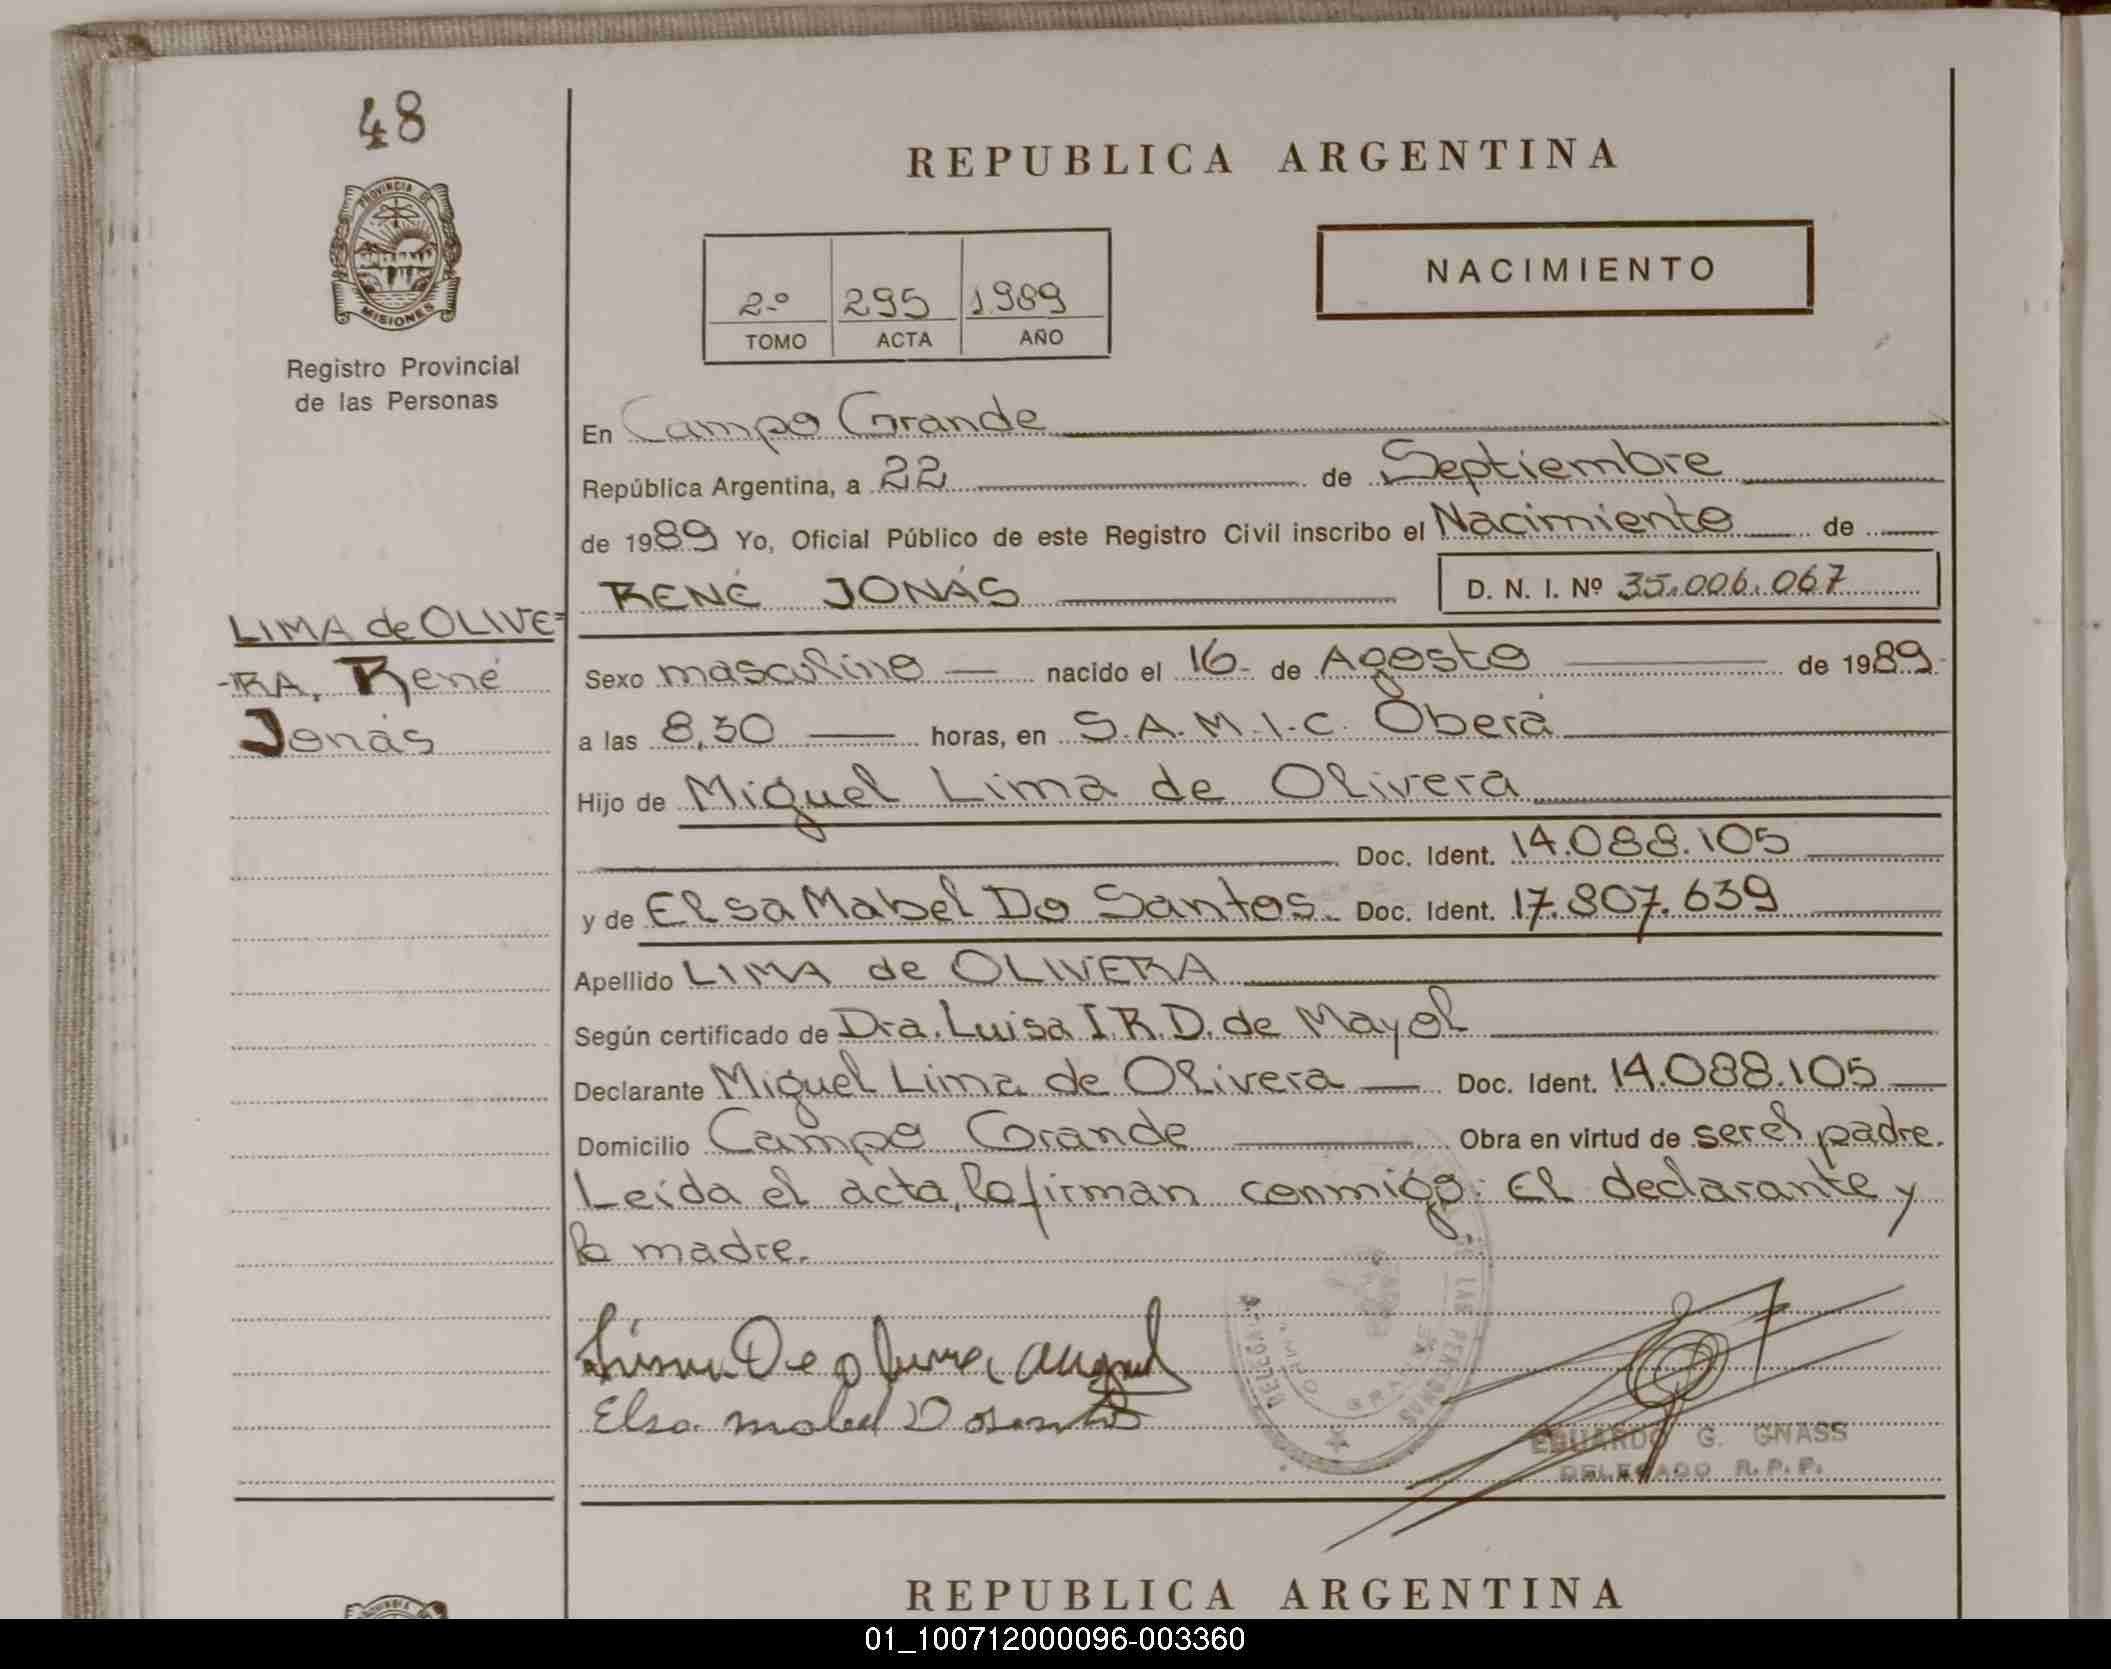 48
PROVINCIA DE
MISIONES
Registro Provincial
de las Personas
LIMA de OLIVE=
-RA, René
Jonás
REPUBLICA ARGENTINA
NACIMIENTO
2º 295 1989
TOMO ACTA AÑO
En Campo Grande
República Argentina, a 22 de Septiembre
de 1989 Yo, Oficial Público de este Registro Civil inscribo el Nacimiento de
RENÉ JONÁS D. N. I. Nº 35.006.067
Sexo masculino nacido el 16- de Agosto de 1989-
a las 8,30 horas, en S.A.M.I.C. Oberá
Hijo de Miguel Lima de Olivera
Doc. Ident. 14.088.105
y de Elsa Mabel Do Santos. Doc. Ident. 17.807.639
Apellido LIMA de OLIVERA
Según certificado de Dra. Luisa I.R.D. de Mayol
Declarante Miguel Lima de Olivera Doc. Ident. 14.088.105
Domicilio Campo Grande Obra en virtud de ser el padre.
Leída el acta, la firman conmigo: El declarante y
la madre.
Elsa mabel Dosantos
EDUARDO G. GNASS
DELEGADO R.P.P.
REPUBLICA ARGENTINA
01_100712000096-003360